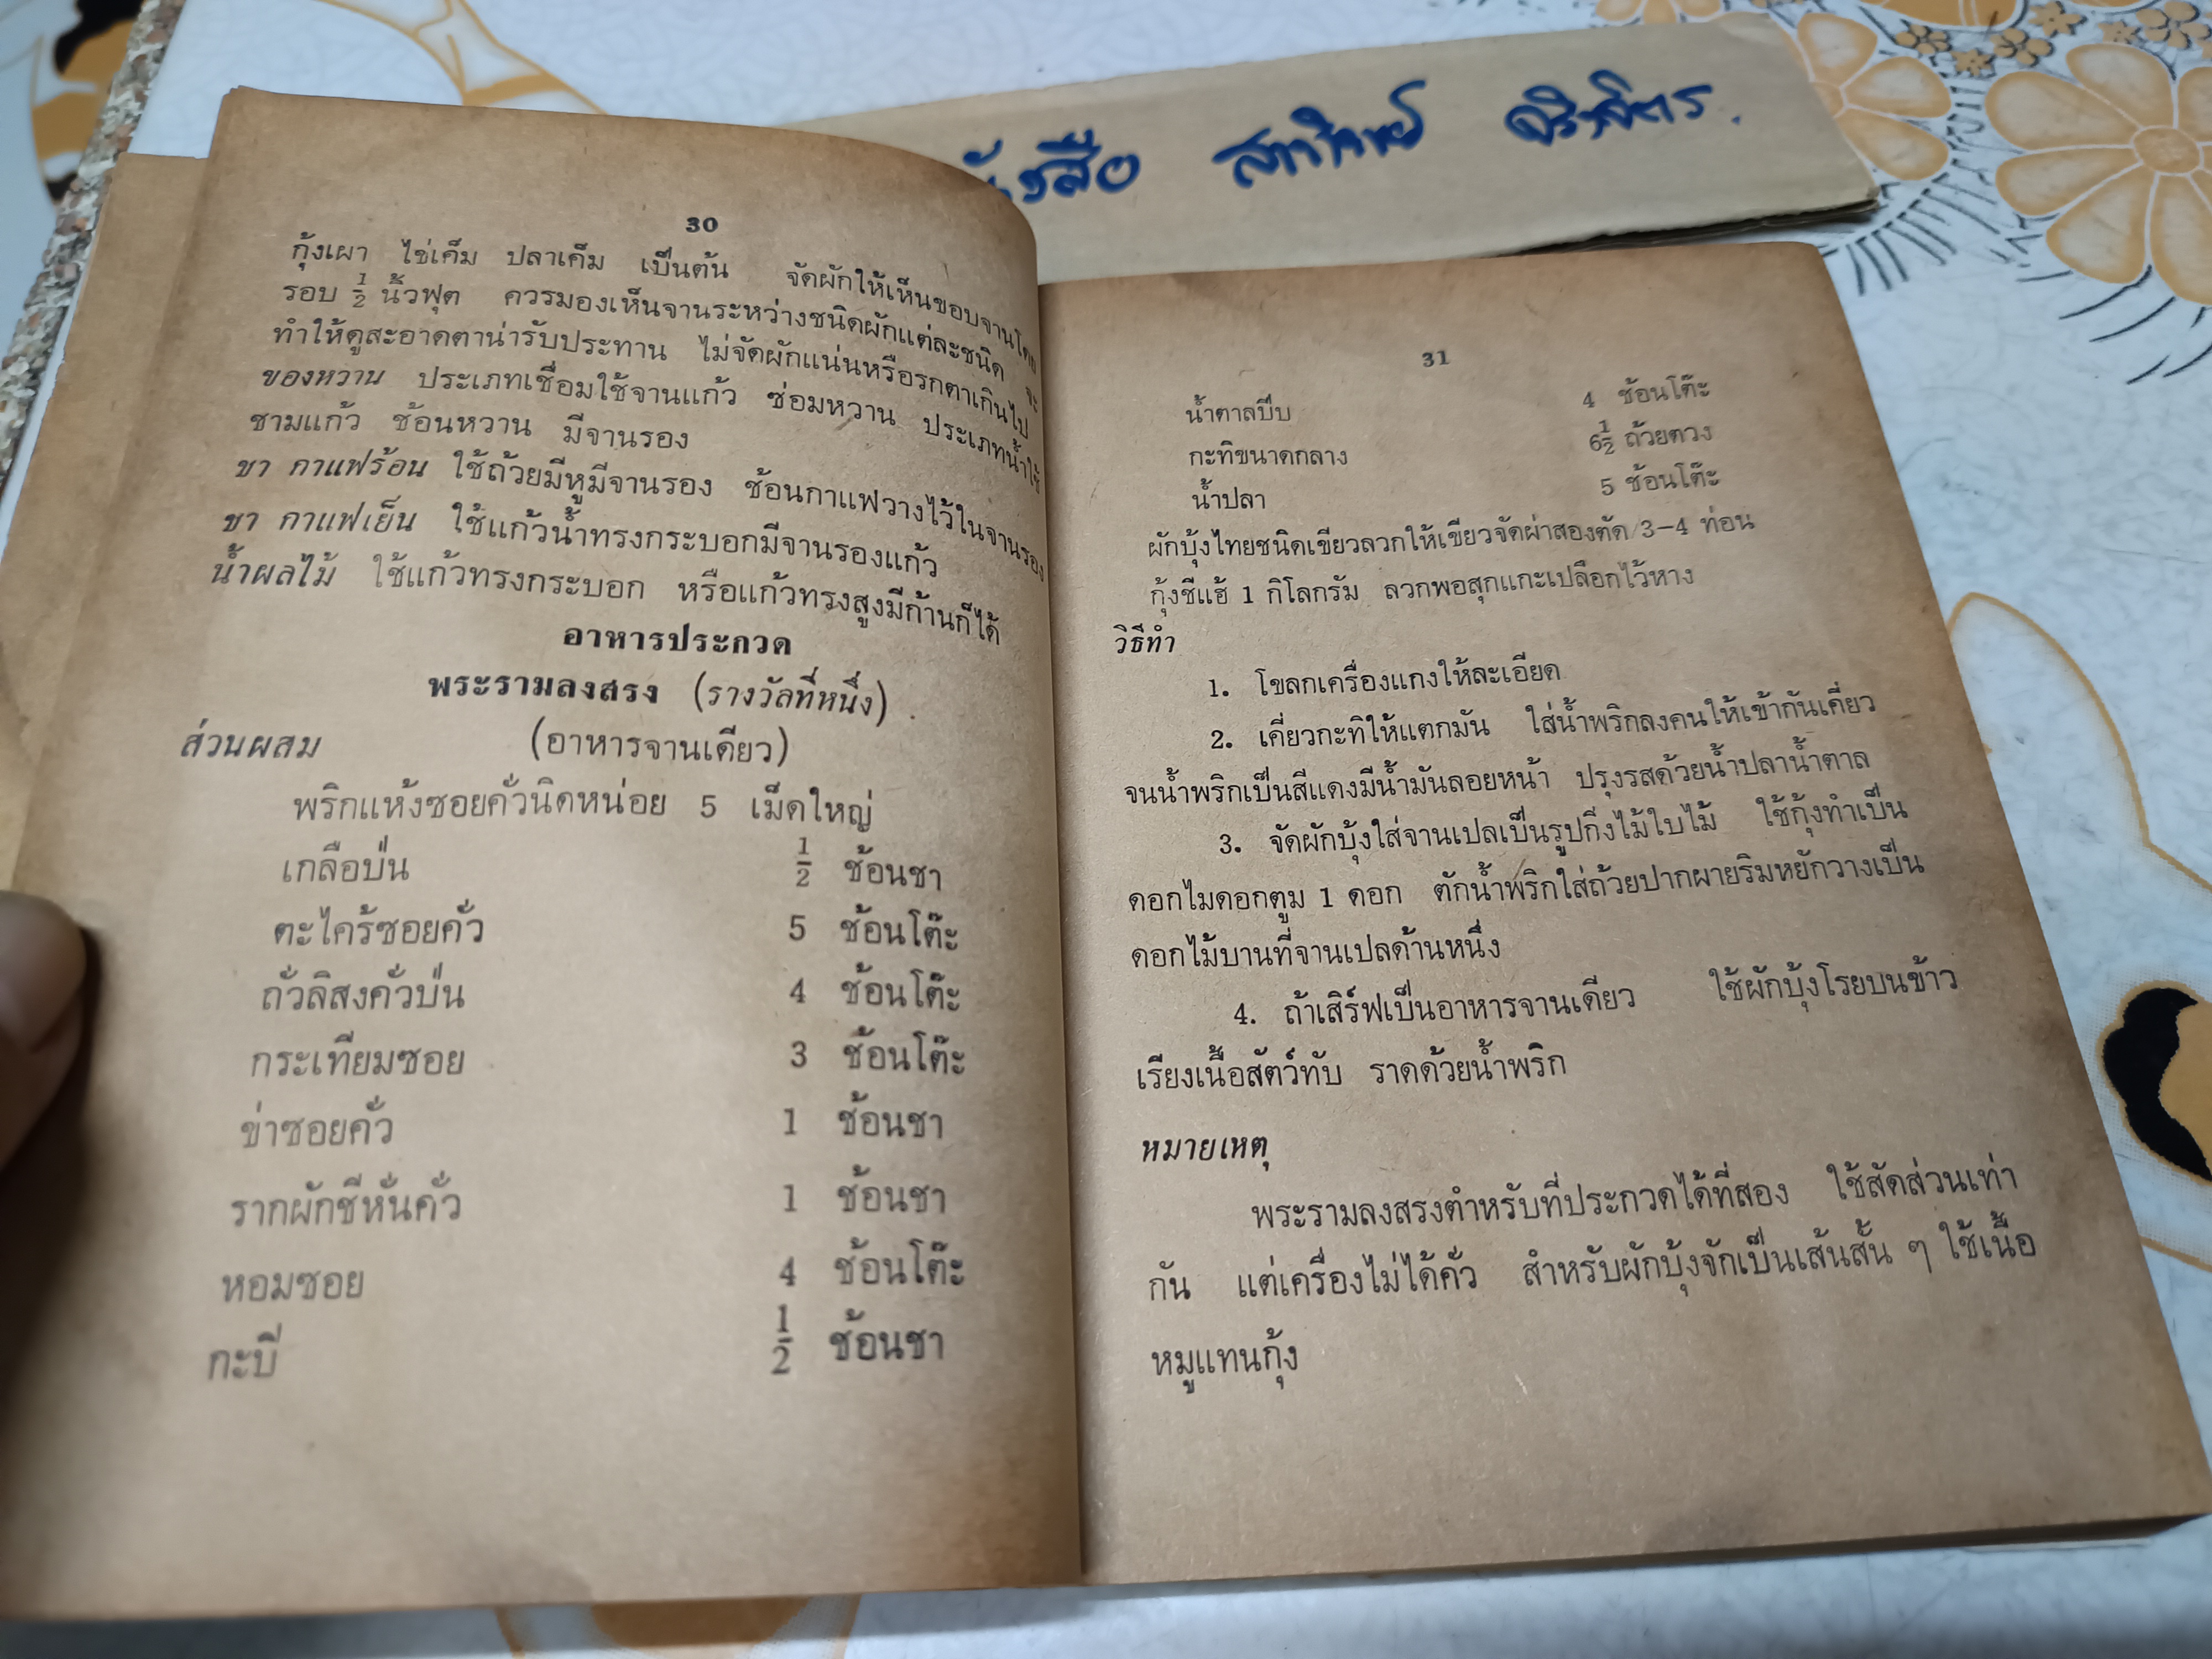 สือ
30
กุ้งเผา ไข่เค็ม ปลาเค็ม เป็นต้น จัดผักให้เห็นขอบจานโดย
รอบ ½ นิ้วฟุต ควรมองเห็นจานระหว่างชนิดผักแต่ละชนิด จะ
ทำให้ดูสะอาดตาน่ารับประทาน ไม่จัดผักแน่นหรือรกตาเกินไป
ของหวาน ประเภทเชื่อมใช้จานแก้ว ซ่อมหวาน ประเภทน้ำใช้
ชามแก้ว ช้อนหวาน มีจานรอง
ชา กาแฟร้อน ใช้ถ้วยมีหูมีจานรอง ช้อนกาแฟวางไว้ในจานรอง
ชา กาแฟเย็น ใช้แก้วน้ำทรงกระบอกมีจานรองแก้ว
น้ำผลไม้ ใช้แก้วทรงกระบอก หรือแก้วทรงสูงมีก้านก็ได้
อาหารประกวด
พระรามลงสรง (รางวัลที่หนึ่ง)
ส่วนผสม (อาหารจานเดียว)
พริกแห้งซอยคั่วนิดหน่อย 5 เม็ดใหญ่
เกลือป่น ½ ช้อนชา
ตะไคร้ซอยคั่ว 5 ช้อนโต๊ะ
ถั่วลิสงคั่วป่น 4 ช้อนโต๊ะ
กระเทียมซอย 3 ช้อนโต๊ะ
ข่าซอยคั่ว 1 ช้อนชา
รากผักชีหั่นคั่ว 1 ช้อนชา
หอมซอย 4 ช้อนโต๊ะ
กะปิ ½ ช้อนชา
31
น้ำตาลปีบ 4 ช้อนโต๊ะ
กะทิขนาดกลาง 6½ ถ้วยตวง
น้ำปลา 5 ช้อนโต๊ะ
ผักบุ้งไทยชนิดเขียวลวกให้เขียวจัดผ่าสองตัด 3–4 ท่อน
กุ้งชีแฮ้ 1 กิโลกรัม ลวกพอสุกแกะเปลือกไว้หาง
วิธีทำ
1. โขลกเครื่องแกงให้ละเอียด
2. เคี่ยวกะทิให้แตกมัน ใส่น้ำพริกลงคนให้เข้ากันเคี่ยว
จนน้ำพริกเป็นสีแดงมีน้ำมันลอยหน้า ปรุงรสด้วยน้ำปลาน้ำตาล
3. จัดผักบุ้งใส่จานเปลเป็นรูปกิ่งไม้ใบไม้ ใช้กุ้งทำเป็น
ดอกไมดอกตูม 1 ดอก ตักน้ำพริกใส่ถ้วยปากผายริมหยักวางเป็น
ดอกไม้บานที่จานเปลด้านหนึ่ง
4. ถ้าเสิร์ฟเป็นอาหารจานเดียว ใช้ผักบุ้งโรยบนข้าว
เรียงเนื้อสัตว์ทับ ราดด้วยน้ำพริก
หมายเหตุ
พระรามลงสรงตำหรับที่ประกวดได้ที่สอง ใช้สัดส่วนเท่า
กัน แต่เครื่องไม่ได้คั่ว สำหรับผักบุ้งจักเป็นเส้นสั้น ๆ ใช้เนื้อ
หมูแทนกุ้ง